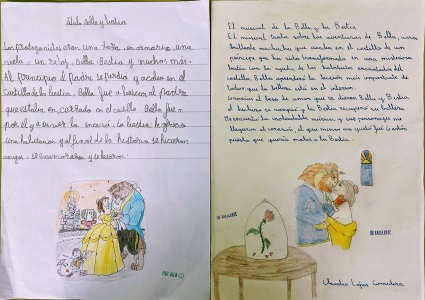 Título bella y bestia
Los protagonistas eran una taza, un armario, una
vela, un reloj, Bella Bestia y muchos más.
Al principio el padre se perdio y acabo en el
Castillo de la bestia. Bella fue a buscar al padre
que estaba en cerrado en el castillo
por el y a vivir la encerró. La bestia le
una habitacion y al final de la historia se hicieron
amigos se enamoraron y se besaron.
El musical de la Bella y la Bestia
El musical trata sobre las aventuras de Bella, una
brillante muchacha que acaba en el castillo de un
príncipe que ha sido transformado en una misteriosa
bestia con la ayuda de los habitantes encantados del
castillo, Bella aprenderá la lección más importante de
todas que la belleza está en el interior.
Con el beso de amor que se dieron Bella y Bestia
el hechizo se rompió y la Bestia recuperó su belleza
Me encantó la inolvidable música y sus personajes me
llegaron al corazón, el que menos me gustó fué Gastón
puesto que quería matar a la Bestia.
Claudia López